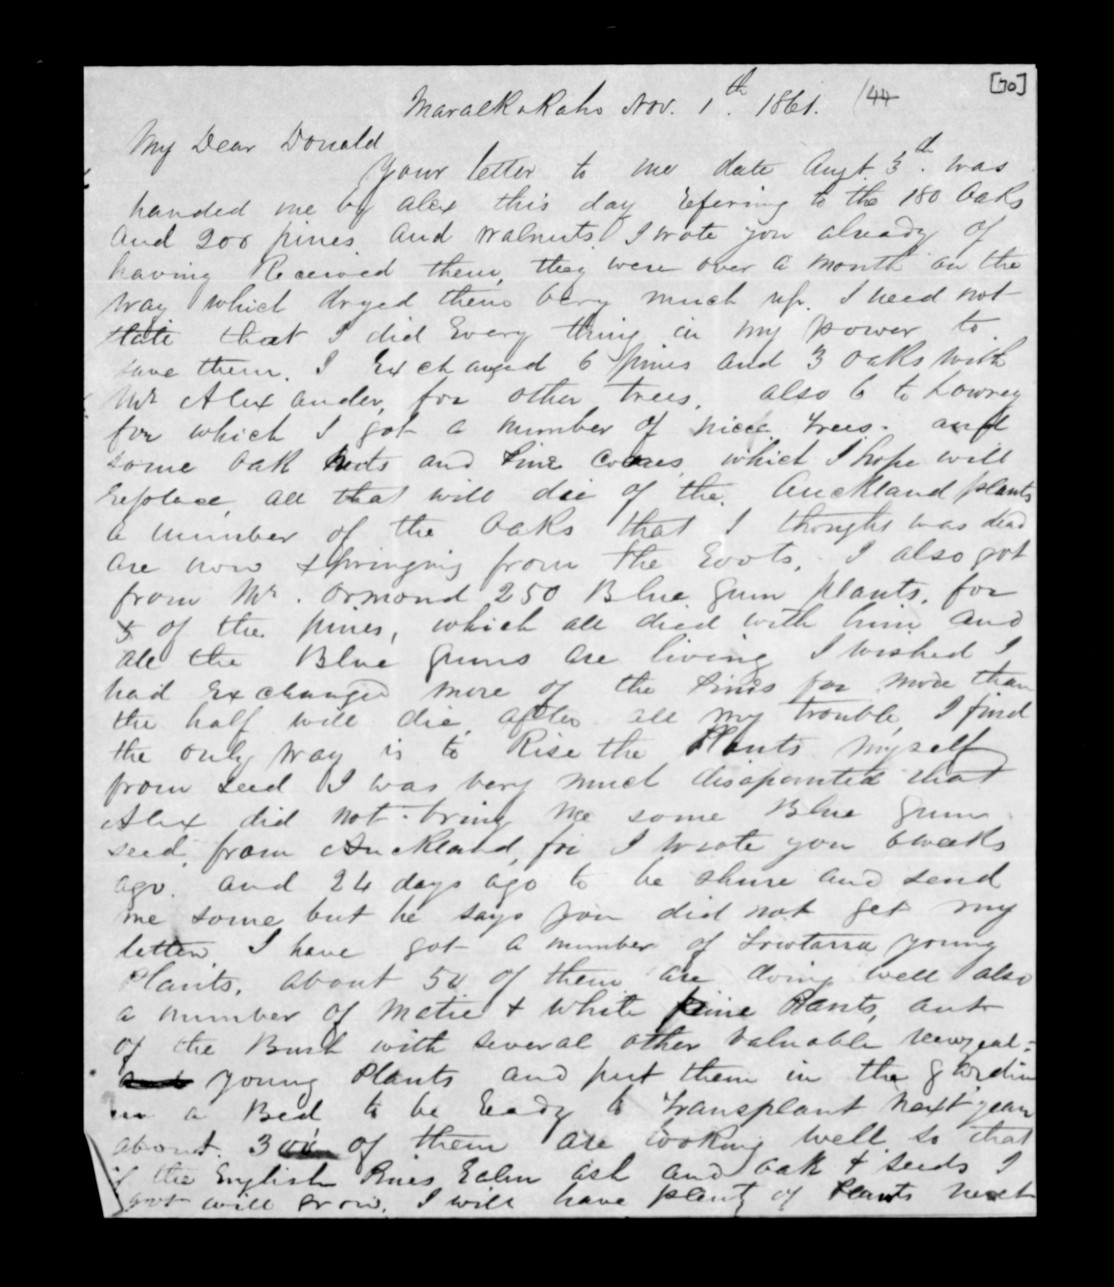 [70]
MaraeKakaho Nov. 1th. 1861. (44
My Dear Donald
Your letter to me date Augt. 3d. was
handed me by Alex this day refering to the 180 Oaks
and 200 pines and walnuts I wrote you already of
having Received them, they were over a month on the
way which dryed them very much up. I need not
state that I did Every thing in my power to
save them. I Exchanged 6 pines and 3 oaks with
Mr Alexander, for other trees, also 6 to Lowrey
for which I got a number of nice trees. and
some oak nuts and pine cones which I hope will
replace all that will die of the Auckland plants
a number of the Oaks that I thought was dead
are now springing from the roots. I also got
from Mr. Ormond 250 Blue gum plants. for
5 of the pines, which all died with him and
all the Blue gums are living I wished I
had Exchanged more of the pines for more than
the half will die, after all my trouble, I find
the only way is to Rise the Plants myself
from seed I was very much disapointed that
Alex did not bring me some Blue gum
seed from Auckland, for I wrote you 6 weeks
ago. and 24 days ago to be shure and send
me some but he says you did not get my
letter. I have got a number of young
Plants. about 50 of them are doing well also
a number of Matie & White pine Plants, out
of the Bush with several other valuable newzeal=
and young Plants and put them in the gardin
in a Bed to be ready to transplant next year
about 300 of them are looking well so that
if the English Pines Ealm ash and oak & seeds I
got will grow. I will have plenty of Plants next